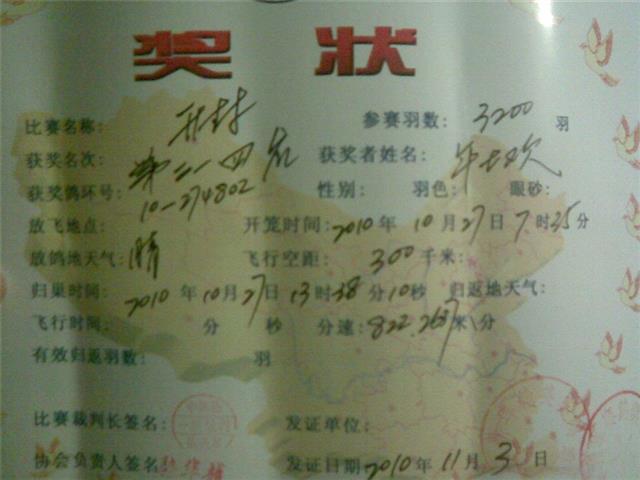 奖状
比赛名称: 开封 参赛羽数: 3200 羽
获奖名次: 第二一四名 获奖者姓名:
获奖鸽环号: 10-274802 性别: 羽色: 眼砂:
放飞地点: 开笼时间: 2010 年 10 月 27 日 7 时 25 分
放鸽地天气: 晴 飞行空距: 300 千米:
归巢时间: 2010 年 10 月 27 日 13 时 38 分 10 秒 归返地天气:
飞行时间: 分 秒 分速: 822.2637 米\分
有效归返羽数: 羽
比赛裁判长签名: 发证单位:
协会负责人签名 发证日期 2010 年 11 月 3 日